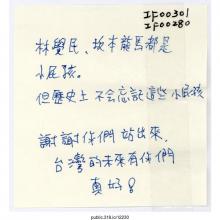 IF00301
IF00280
林覺民、坂本龍馬都是
小屁孩。
但歷史上不会忘記這些小屁孩
謝謝你們站出來，
台灣的未來有你們
真好！
public.318.io/12230